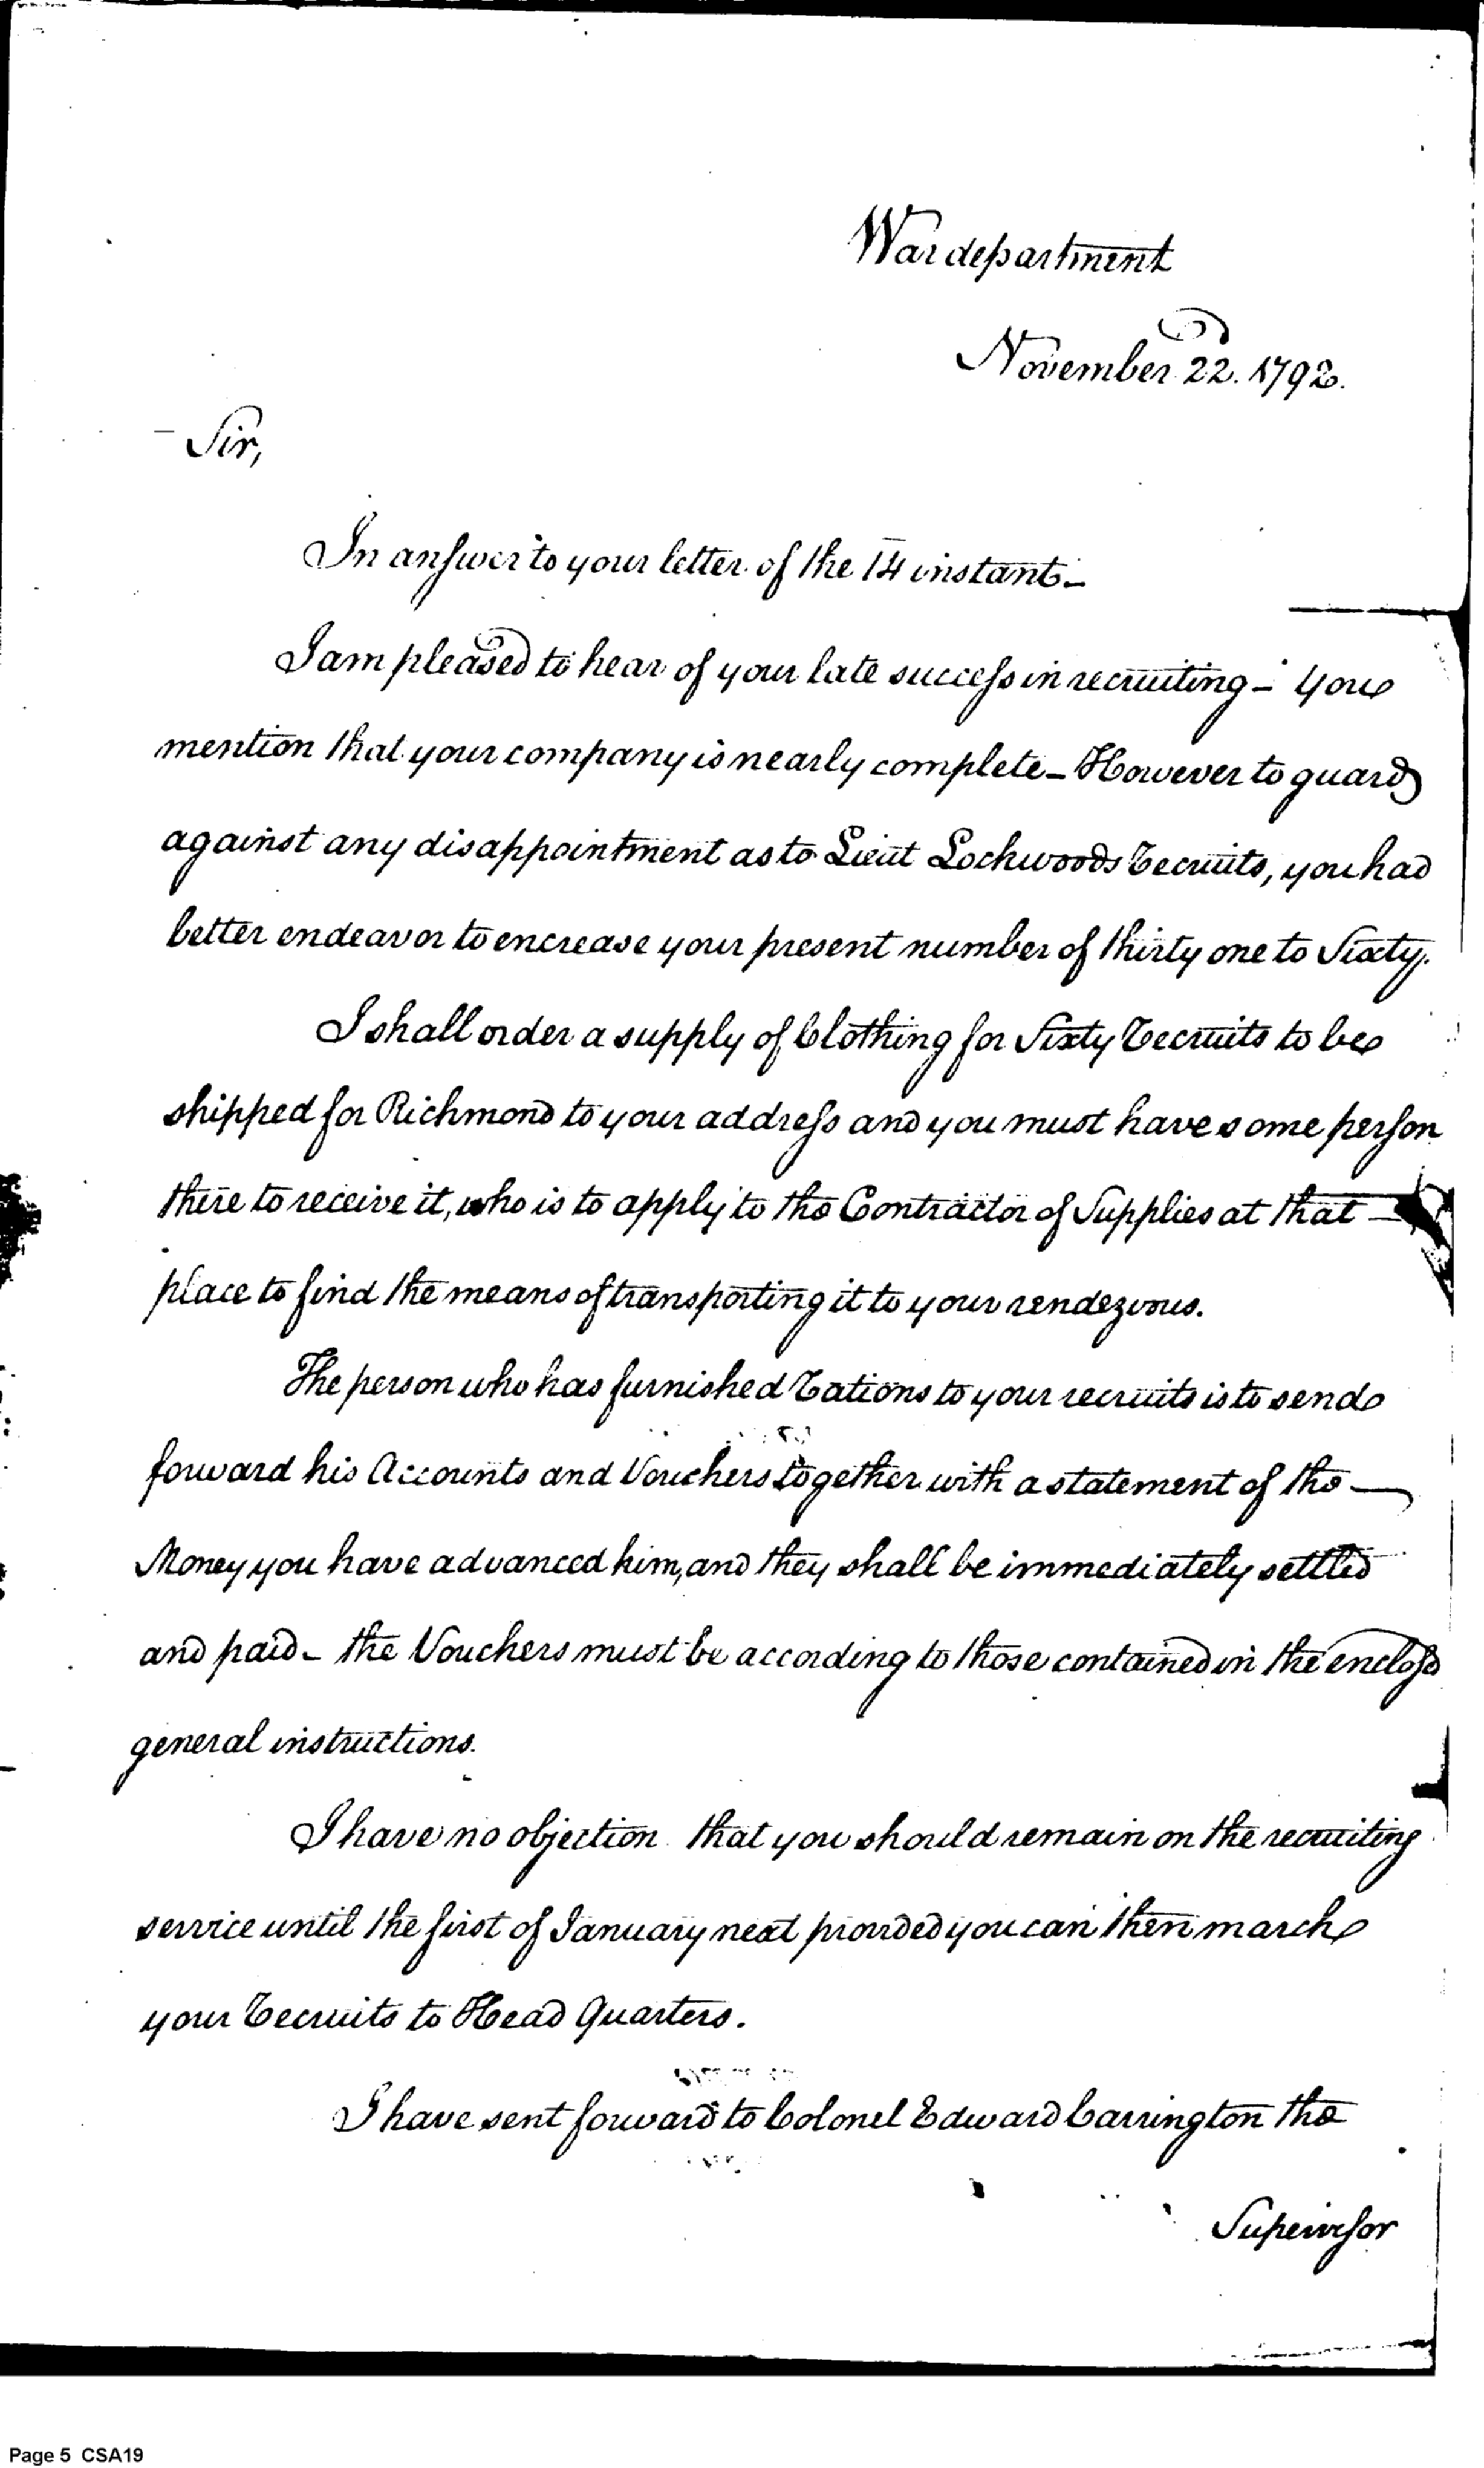 War department
November 22. 1792.
Sir,
In answer to your letter of the 14 instant -
I am pleased to hear of your late success in recruiting - you
mention that your company is nearly complete - However to guard
against any disappointment as to Lieut Lockwoods Recruits, you had
better endeavor to encrease your present number of thirty one to Sixty.
I shall order a supply of Clothing for Sixty Recruits to be
shipped for Richmond to your address and you must have some person
there to receive it, who is to apply to the Contractor of Supplies at that
place to find the means of transporting it to your rendezvous.
The person who has furnished Rations to your recruits is to send
forward his Accounts and Vouchers together with a statement of the
Money you have advanced him, and they shall be immediately settled
and paid - the Vouchers must be according to those contained in the enclosd
general instructions.
I have no objection that you should remain on the recruiting
service until the first of January next provided you can then march
your Recruits to Head Quarters.
I have sent forward to Colonel Edward Carrington the
Supervisor
Page 5 CSA19